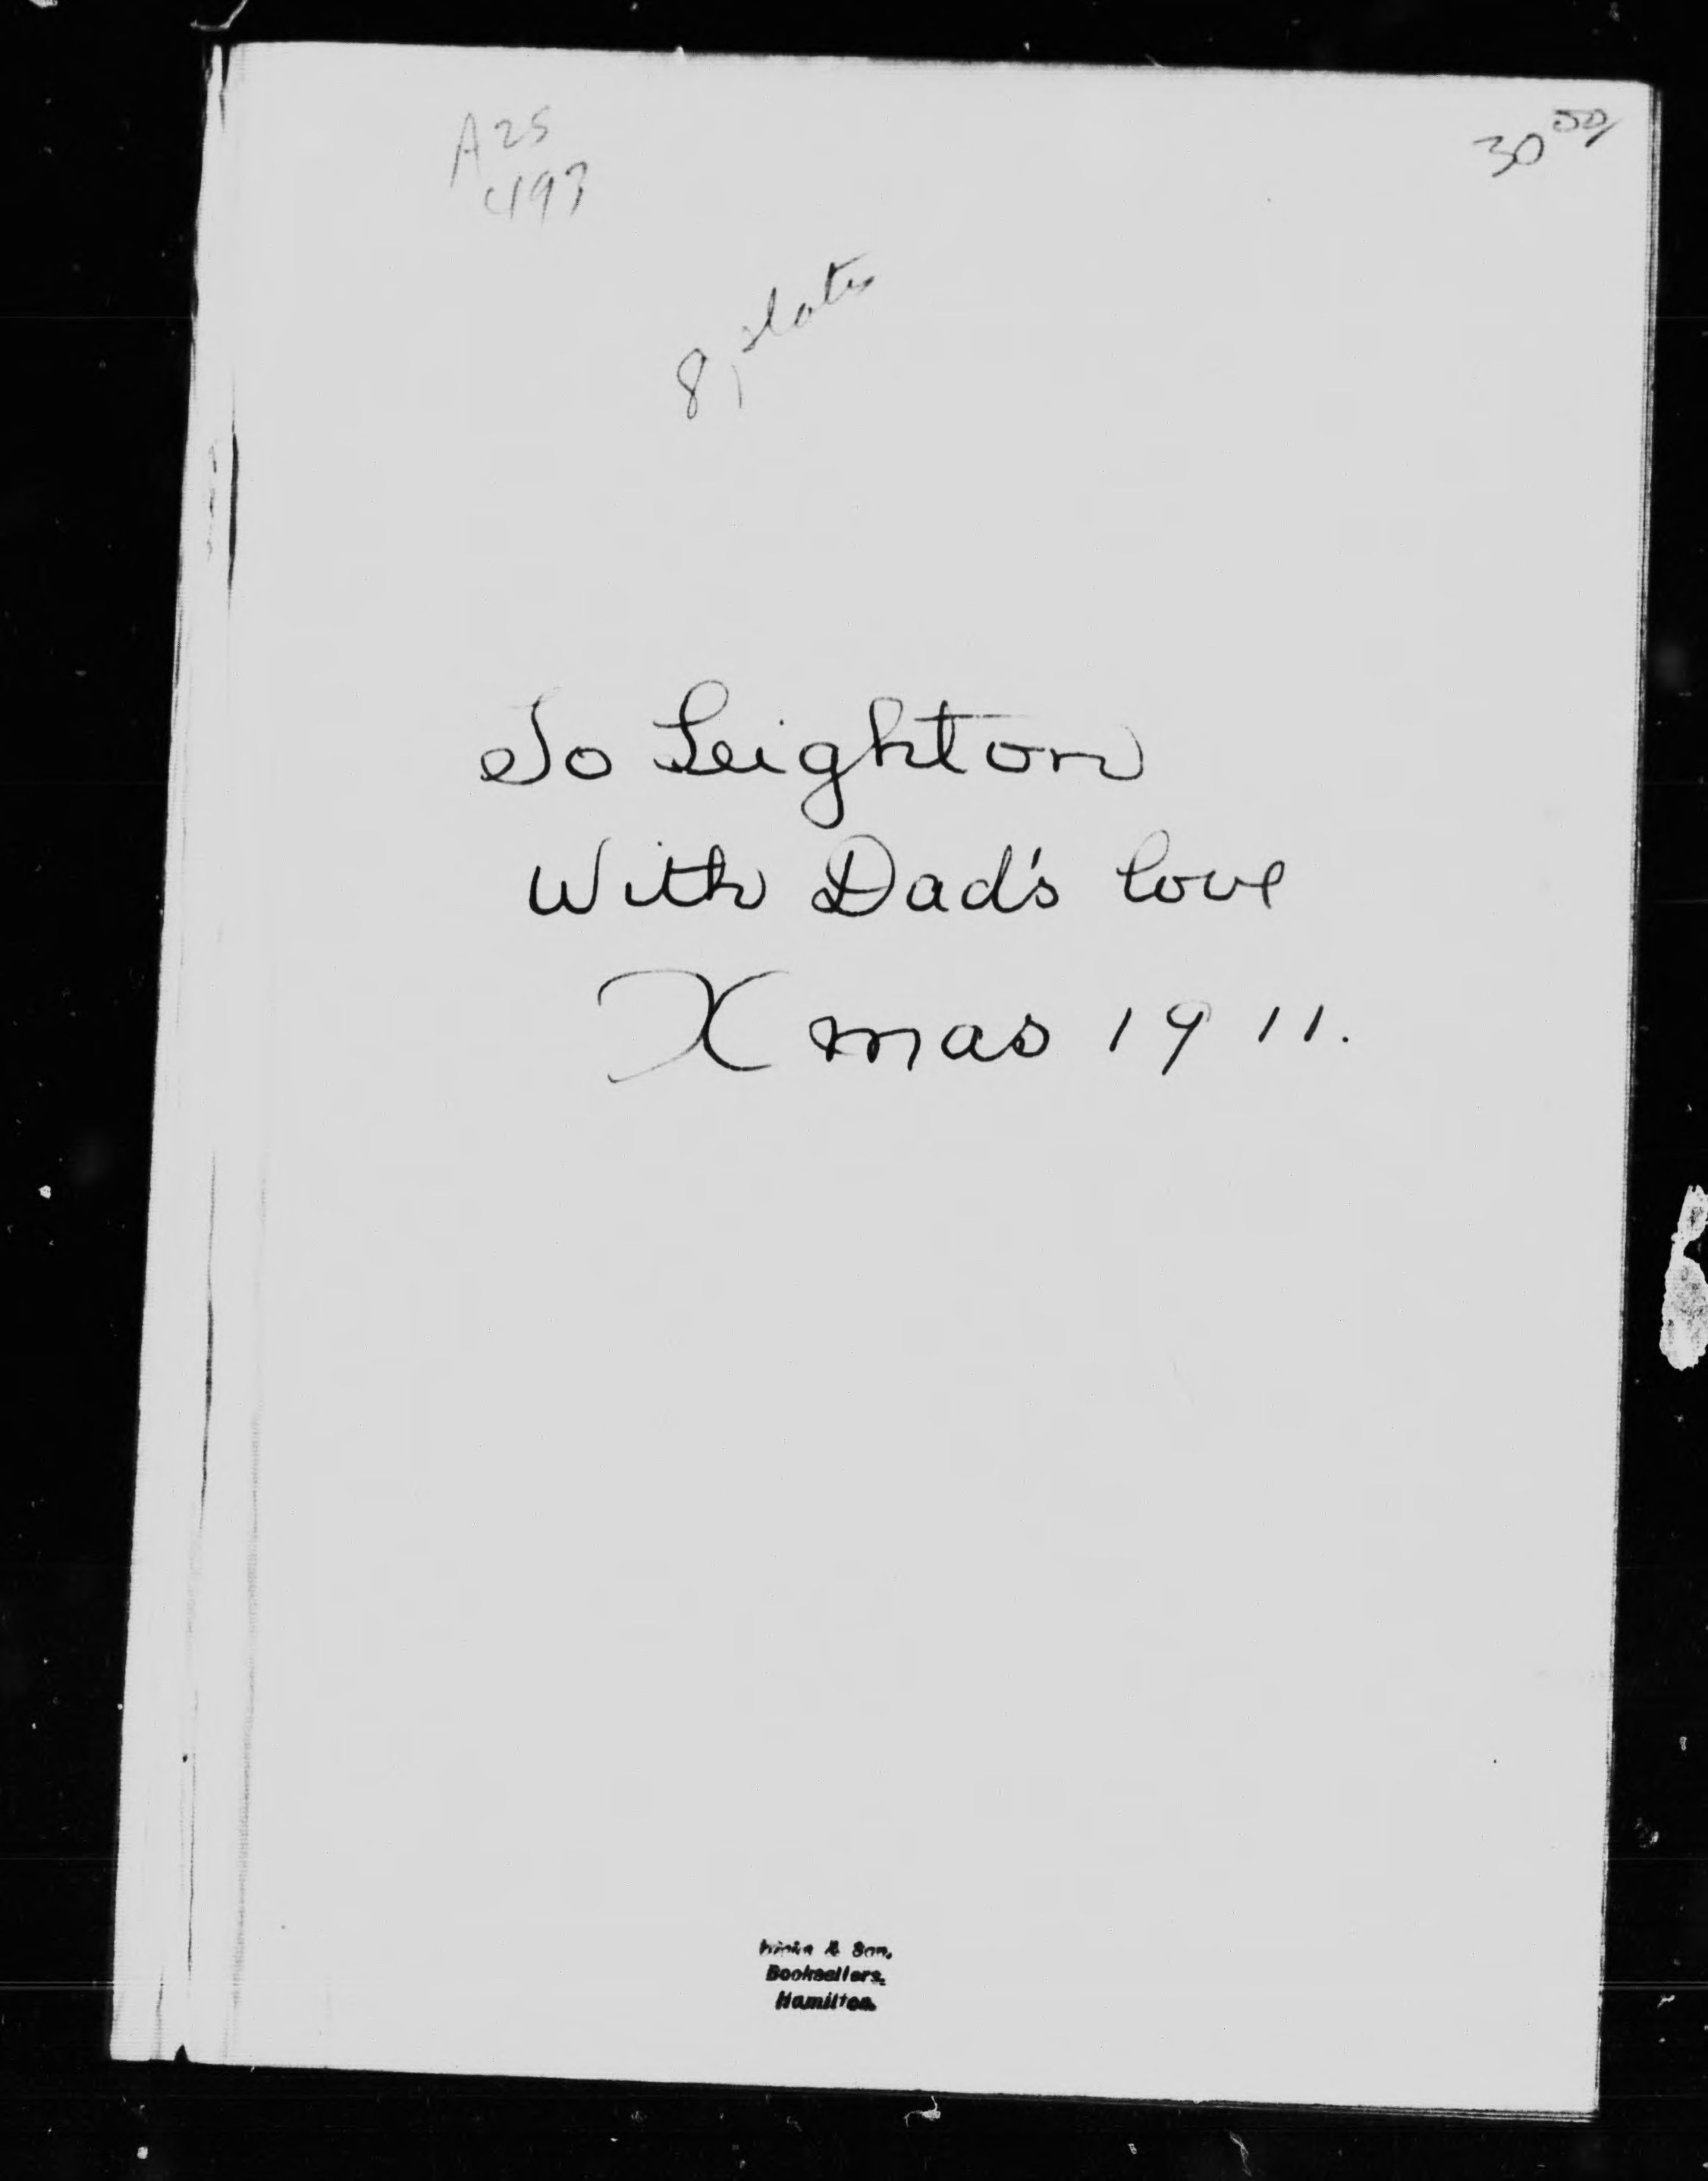 A25
493
30 00/
8 plates
To Leighton
With Dad's love
Xmas 1911.
& Son,
Booksellers,
Hamilton.